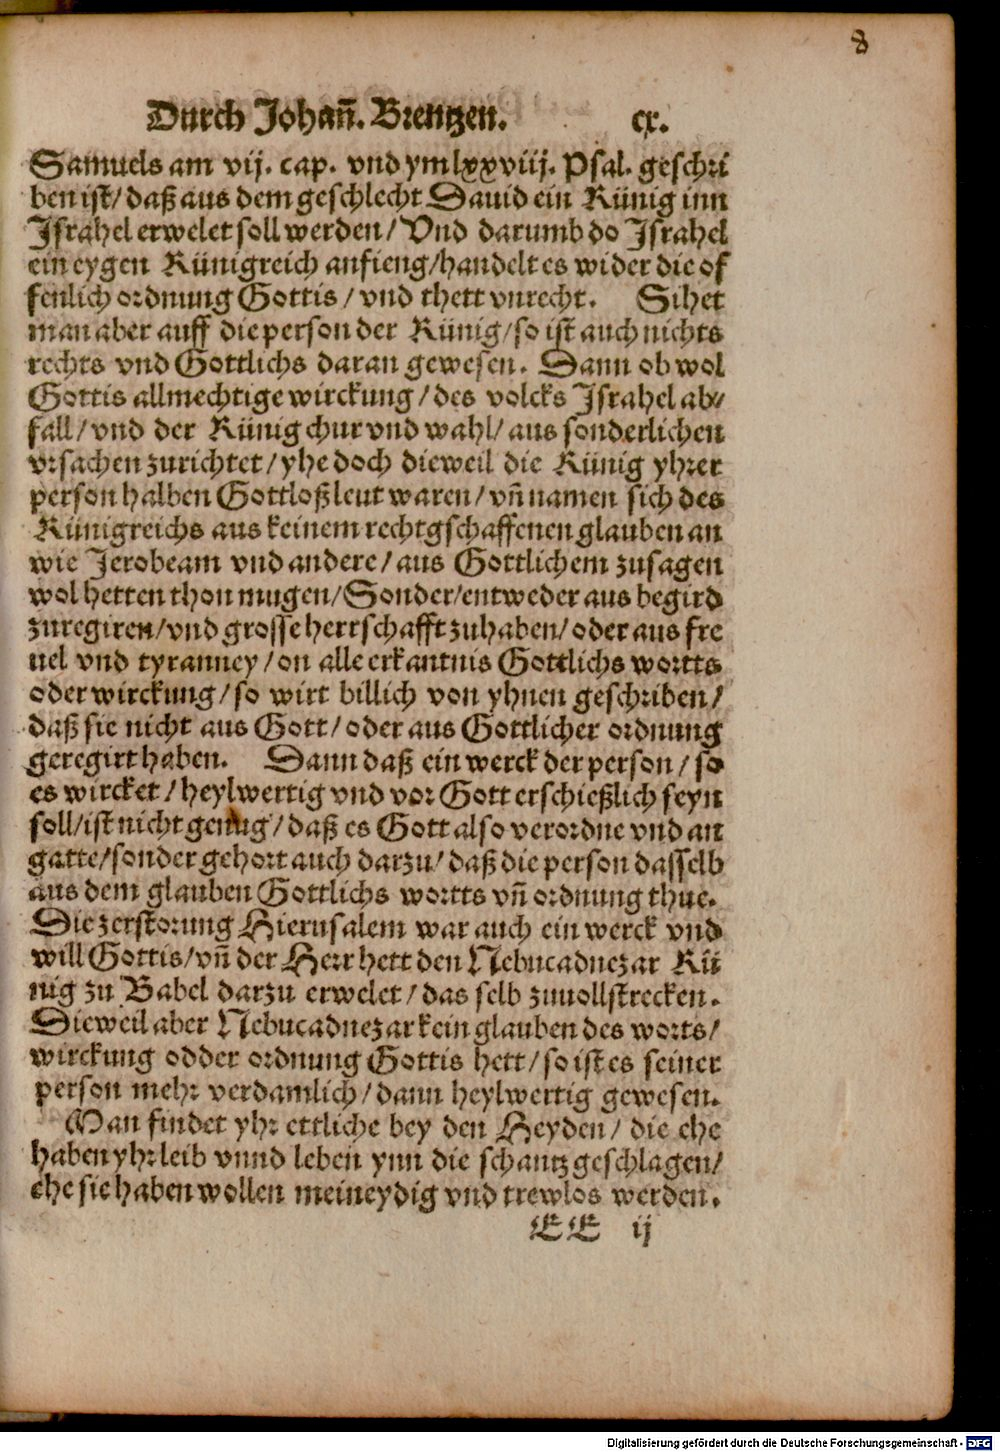 8
Durch Johañ. Brentzen. cx.
Samuels am vij. cap. vnd ym lxxviij. Psal. geschri
ben ist/ daß aus dem geschlecht Dauid ein Künig inn
Jsrahel erwelet soll werden/ Vnd darumb do Jsrahel
ein eygen Künigreich anfieng/ handelt es wider die of
fenlich ordnung Gottis/ vnd thett vnrecht. Sihet
man aber auff die person der Künig/ so ist auch nichts
rechts vnd Gottlichs daran gewesen. Dann ob wol
Gottis allmechtige wirckung/ des volcks Jsrahel ab⸗
fall/ vnd der Künig chur vnd wahl/ aus sonderlichen
vrsachen zurichtet/ yhe doch dieweil die Künig yhrer
person halben Gottloß leut waren/ vñ namen sich des
Künigreichs aus keinem rechtgschaffenen glauben an
wie Jerobeam vnd andere/ aus Gottlichem zusagen
wol hetten thon mugen/ Sonder/ entweder aus begird
zuregiren/ vnd grosse herrschafft zuhaben/ oder aus fre
uel vnd tyranney/ on alle erkantnis Gottlichs wortts
oder wirckung/ so wirt billich von yhnen geschriben/
daß sie nicht aus Gott/ oder aus Gottlicher ordnung
geregirt haben. Dann daß ein werck der person/ so
es wircket/ heylwertig vnd vor Gott erschießlich seyn
soll/ ist nicht genug/ daß es Gott also verordne vnd an
gatte/ sonder gehort auch darzu/ daß die person dasselb
aus dem glauben Gottlichs wortts vñ ordnung thue.
Die zerstorung Hierusalem war auch ein werck vnd
will Gottis/ vñ der Herr hett den Nebucadnezar Kü
nig zu Babel darzu erwelet/ das selb zuuollstrecken.
Dieweil aber Nebucadnezar kein glauben des worts/
wirckung odder ordnung Gottis hett/ so ist es seiner
person mehr verdamlich/ dann heylwertig gewesen.
Man findet yhr ettliche bey den Heyden/ die ehe
haben yhr leib vnnd leben ynn die schantz geschlagen/
ehe sie haben wollen meineydig vnd trewlos werden.
EE ij
Digitalisierung gefördert durch die Deutsche Forschungsgemeinschaft - DFG